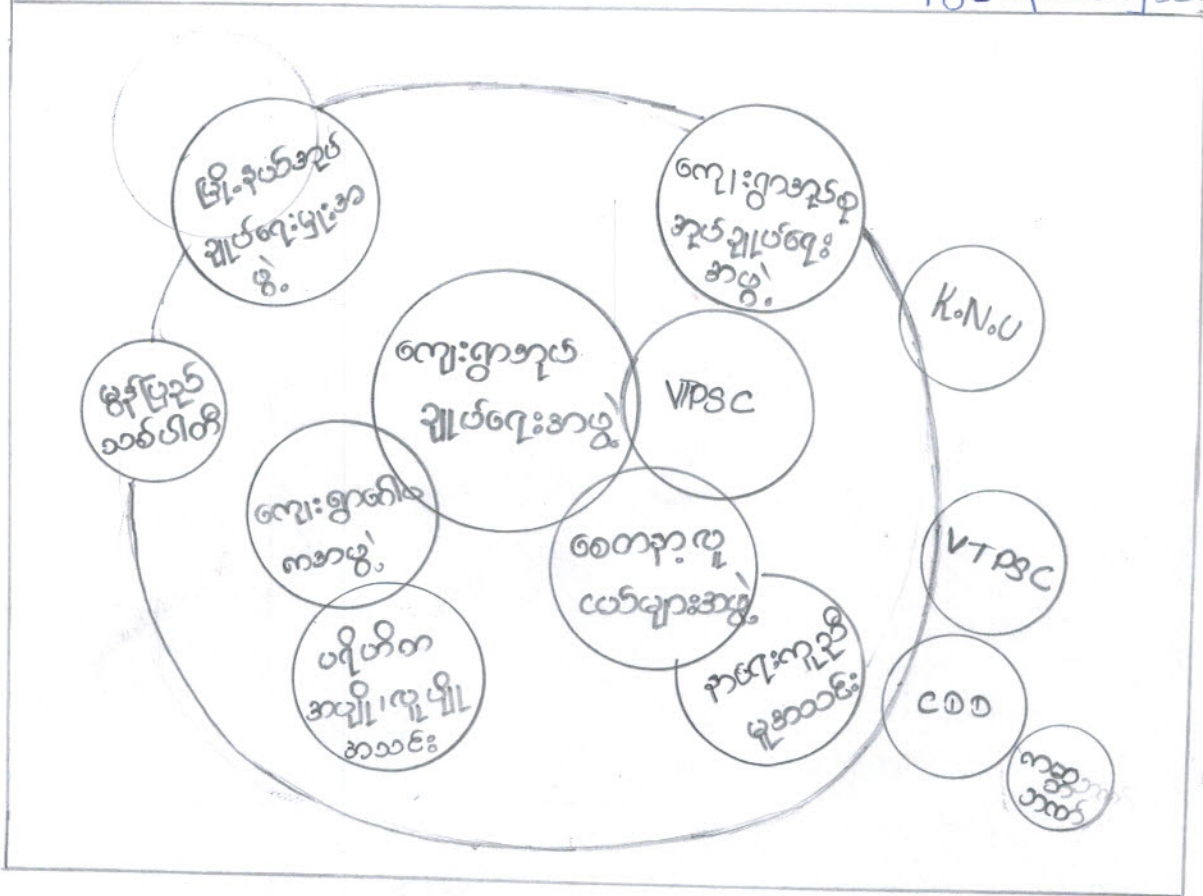 မြို့နယ်အုပ်
ချုပ်ရေးမှူးအ
ဖွဲ့
ကျေးရွာအုပ်စု
အုပ်ချုပ်ရေး
အဖွဲ့
K.N.U
ကျေးရွာအုပ်
ချုပ်ရေးအဖွဲ့
VTPSC
မွန်ပြည်
သစ်ပါတီ
ကျေးရွာဂေါပ
ကအဖွဲ့
စေတနာ့လူ
ငယ်များအဖွဲ့
VTPSC
ပရိဟိတ
အပျို၊လူပျို
အသင်း
နာရေးကူညီ
မှုအသင်း
CDD
ကမ္ဘာ့
ဘဏ်